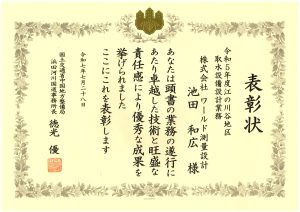 表彰状
令和５年度江の川谷地区
取水設備設計業務
株式会社ワールド測量設計
池田 和広 様
あなたは頭書の業務の遂行に
あたり卓越した技術と旺盛な
責任感により優秀な成果を
挙げられました
ここにこれを表彰します
令和七年七月二十八日
国土交通省中国地方整備局
浜田河川国道事務所長
徳光 優